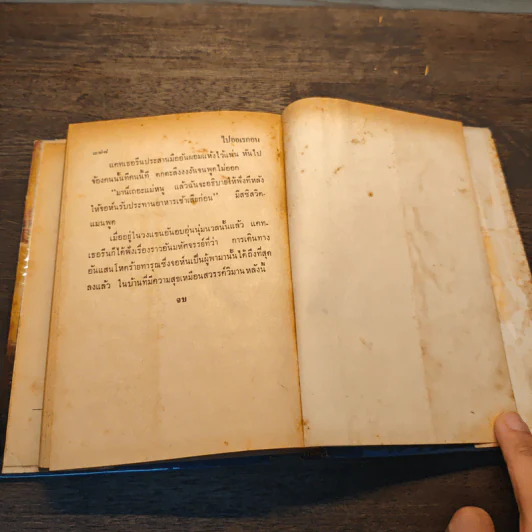 ๓๔๘ ไปยอมรกอบ
แคทเธอรีนประสานมือยันผอมแห้งไว้แน่น หันไป
จ้องคนนั้นทีคนนี้ที ตกตะลึงงงงันจนพูดไม่ออก
"มานี่เถอะแม่หนู แล้วฉันจะอธิบายให้ฟังทีหลัง
ให้จอห์นรับประทานอาหารเช้าเสียก่อน" มิสซิสวิต-
แมนพูด
เมื่ออยู่ในวงแขนอันอบอุ่นนุ่มนวลนั้นแล้ว แคท-
เธอรีนก็ได้ฟังเรื่องราวอันมหัศจรรย์ที่ว่า การเดินทาง
อันแสนโหดร้ายทารุณซึ่งจอห์นเป็นผู้พามานั้นได้ถึงที่สุด
ลงแล้ว ในบ้านที่มีความสุขเหมือนสวรรค์วิมานหลังนี้
จบ